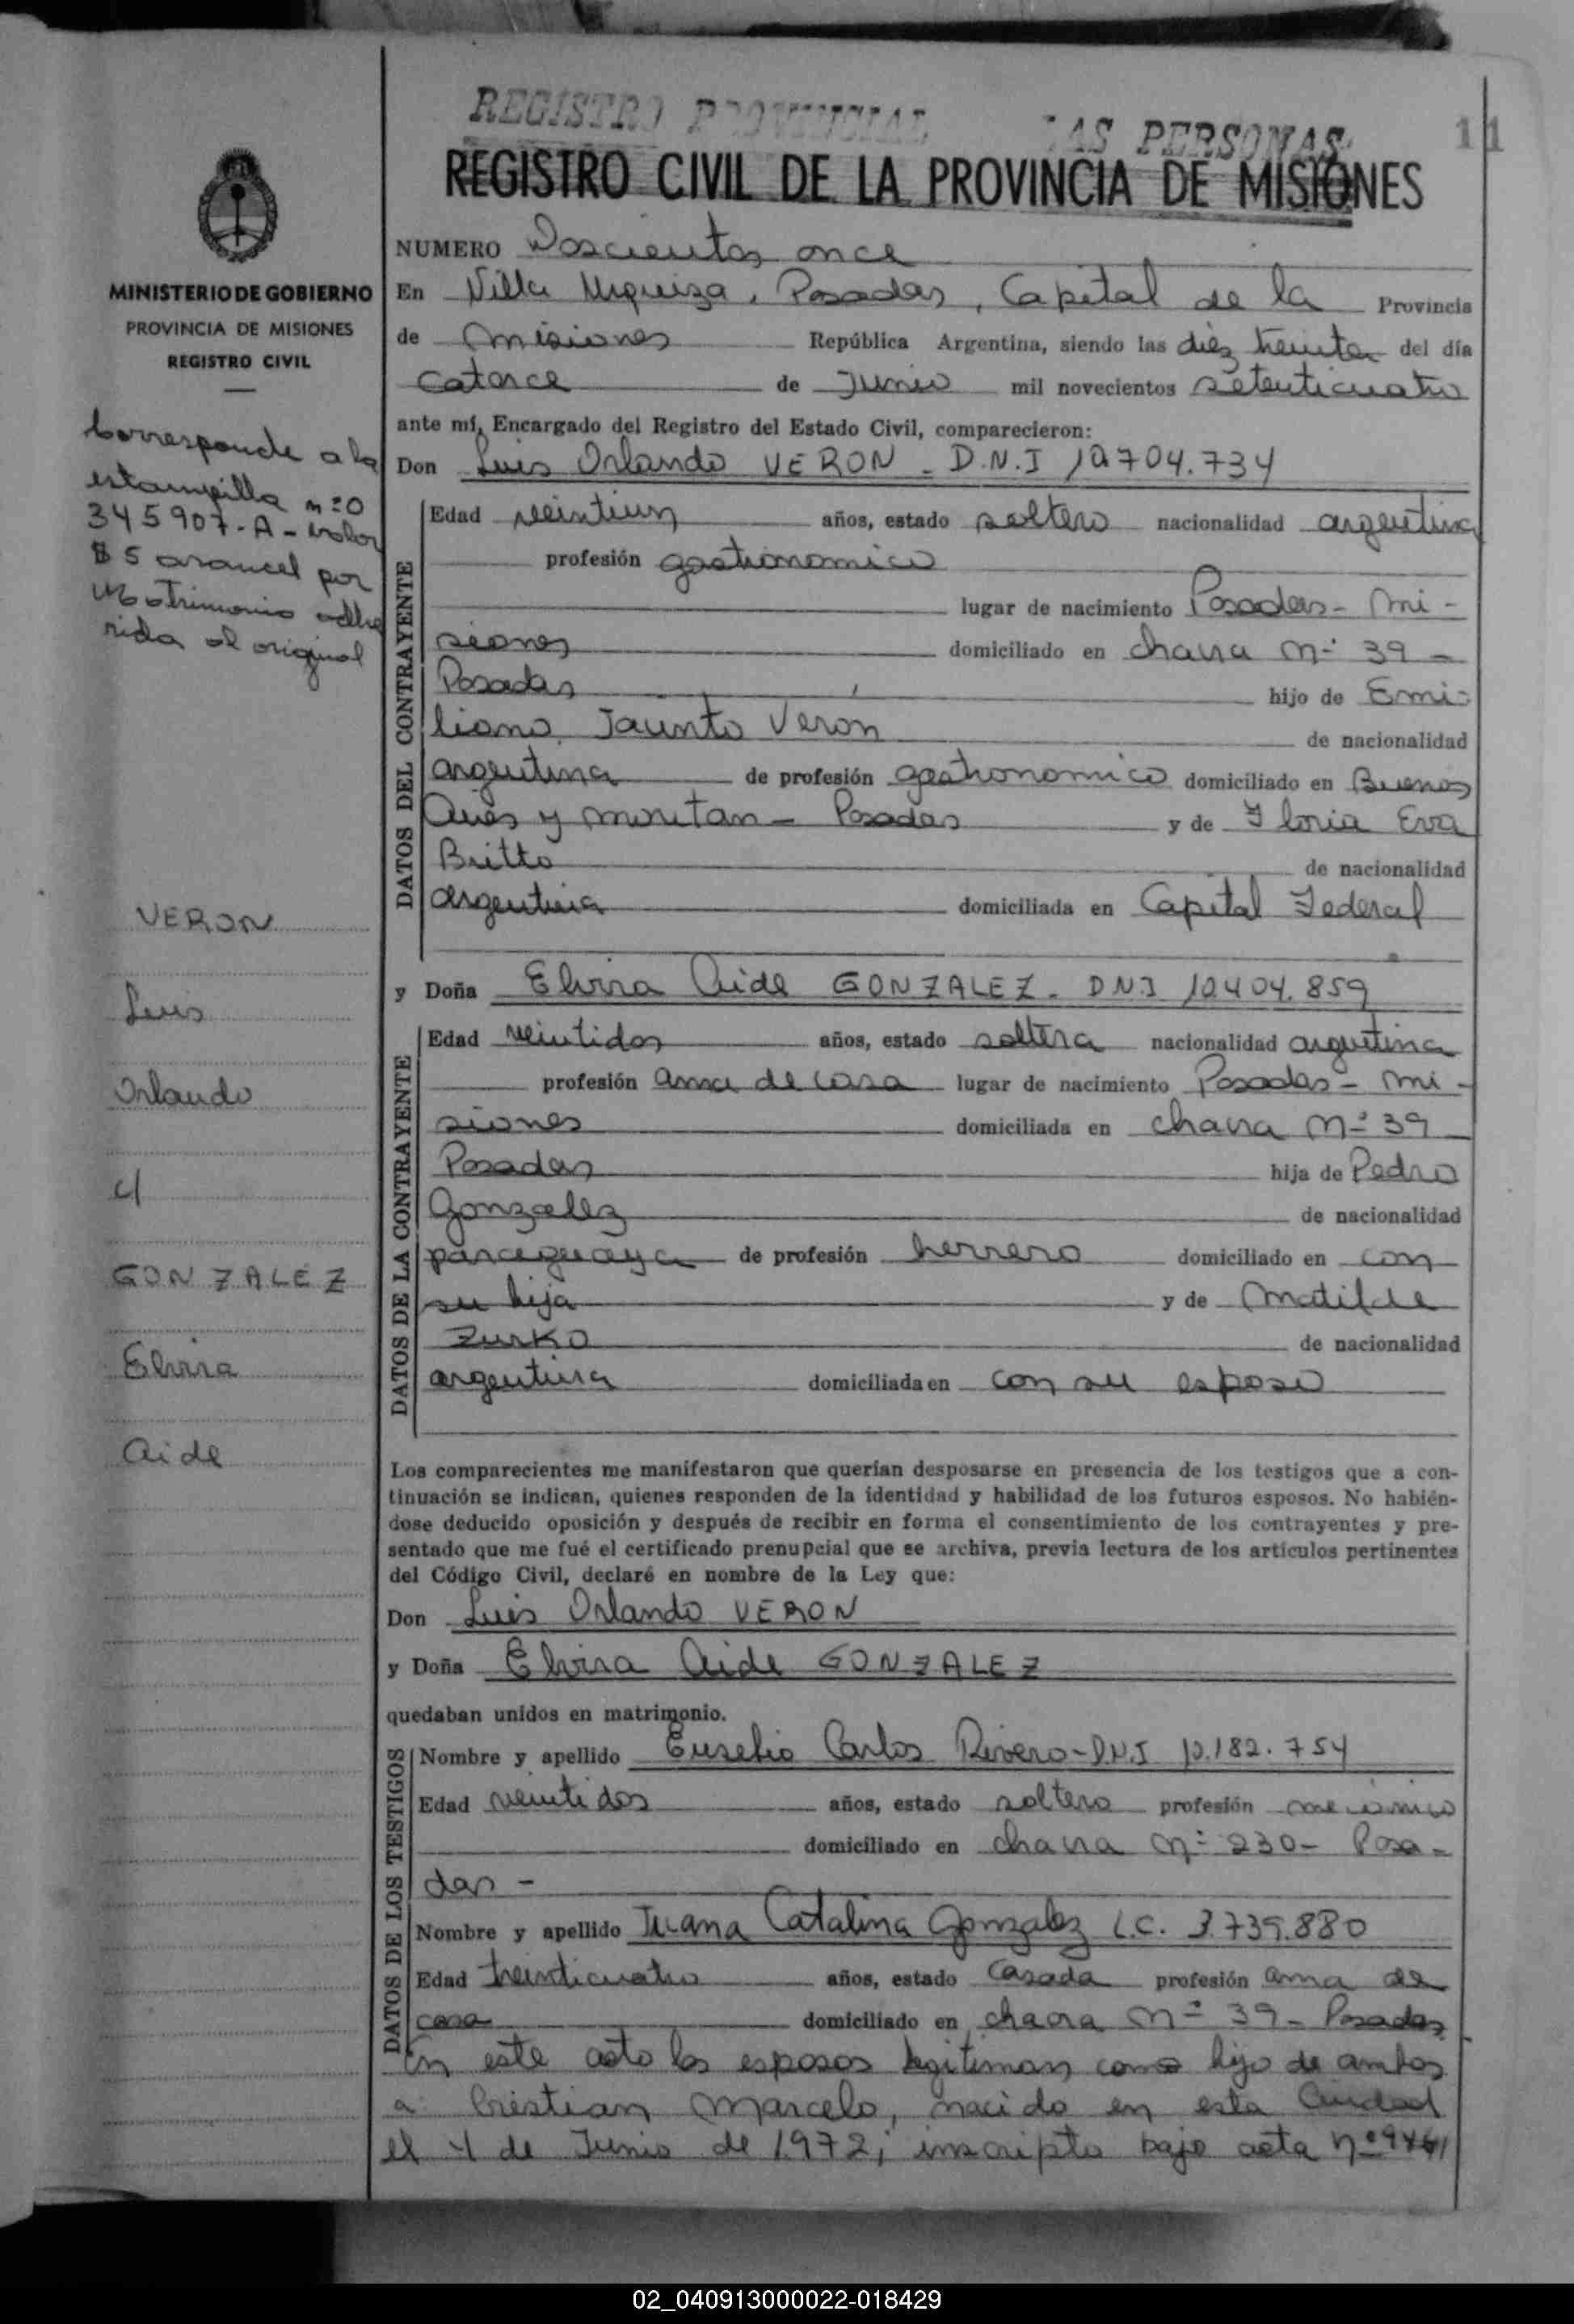 REGISTRO PROVINCIAL LAS PERSONAS
11
REGISTRO CIVIL DE LA PROVINCIA DE MISIONES
MINISTERIO DE GOBIERNO
PROVINCIA DE MISIONES
REGISTRO CIVIL
Corresponde a la
estampilla nº0
345907-A-valor
$5 arancel por
Matrimonio adhe
rida al original
VERON
Luis
Orlando
c/
GONZALEZ
Elvira
Aide
NUMERO Doscientos once
En Villa Urquiza, Posadas, Capital de la Provincia
de Misiones República Argentina, siendo las diez treinta del día
Catorce de Junio mil novecientos setenticuatro
ante mí, Encargado del Registro del Estado Civil, comparecieron:
Don Luis Orlando VERON - D.N.I 10704.734
DATOS DEL CONTRAYENTE
Edad veintiun años, estado soltero nacionalidad argentina
profesión gastronomico
lugar de nacimiento Posadas - Mi-
siones domiciliado en chacra Nº 39 -
Posadas hijo de Emi-
liano Jacinto Veron de nacionalidad
argentina de profesión gastronomico domiciliado en Buenos
Aires y - Posadas y de Gloria Eva
Britto de nacionalidad
argentina domiciliada en Capital Federal
y Doña Elvira Aide GONZALEZ - D.N.I 10404.859
DATOS DE LA CONTRAYENTE
Edad veintidos años, estado soltera nacionalidad argentina
profesión ama de casa lugar de nacimiento Posadas - Mi-
siones domiciliada en chacra Nº 39
Posadas hija de Pedro
Gonzalez de nacionalidad
paraguaya de profesión herrero domiciliado en con
su hija y de Matilde
Zurko de nacionalidad
argentina domiciliada en con su esposo
Los comparecientes me manifestaron que querían desposarse en presencia de los testigos que a con-
tinuación se indican, quienes responden de la identidad y habilidad de los futuros esposos. No habién-
dose deducido oposición y después de recibir en forma el consentimiento de los contrayentes y pre-
sentado que me fué el certificado prenupcial que se archiva, previa lectura de los artículos pertinentes
del Código Civil, declaré en nombre de la Ley que:
Don Luis Orlando VERON
y Doña Elvira Aide GONZALEZ
quedaban unidos en matrimonio.
DATOS DE LOS TESTIGOS
Nombre y apellido Eusebio Carlos Rivero - D.N.I 10.182.754
Edad veintidos años, estado soltero profesión mecánico
domiciliado en chacra Nº 230 - Posa-
das -
Nombre y apellido Juana Catalina Gonzalez L.C. 3.739.880
Edad treinticuatro años, estado Casada profesión ama de
casa domiciliado en chacra Nº 39 - Posadas
En este acto los esposos legitiman como hijo de ambos
a Cristian Marcelo, nacido en esta Ciudad
el 4 de Junio de 1.972; inscripto bajo acta
02_040913000022-018429